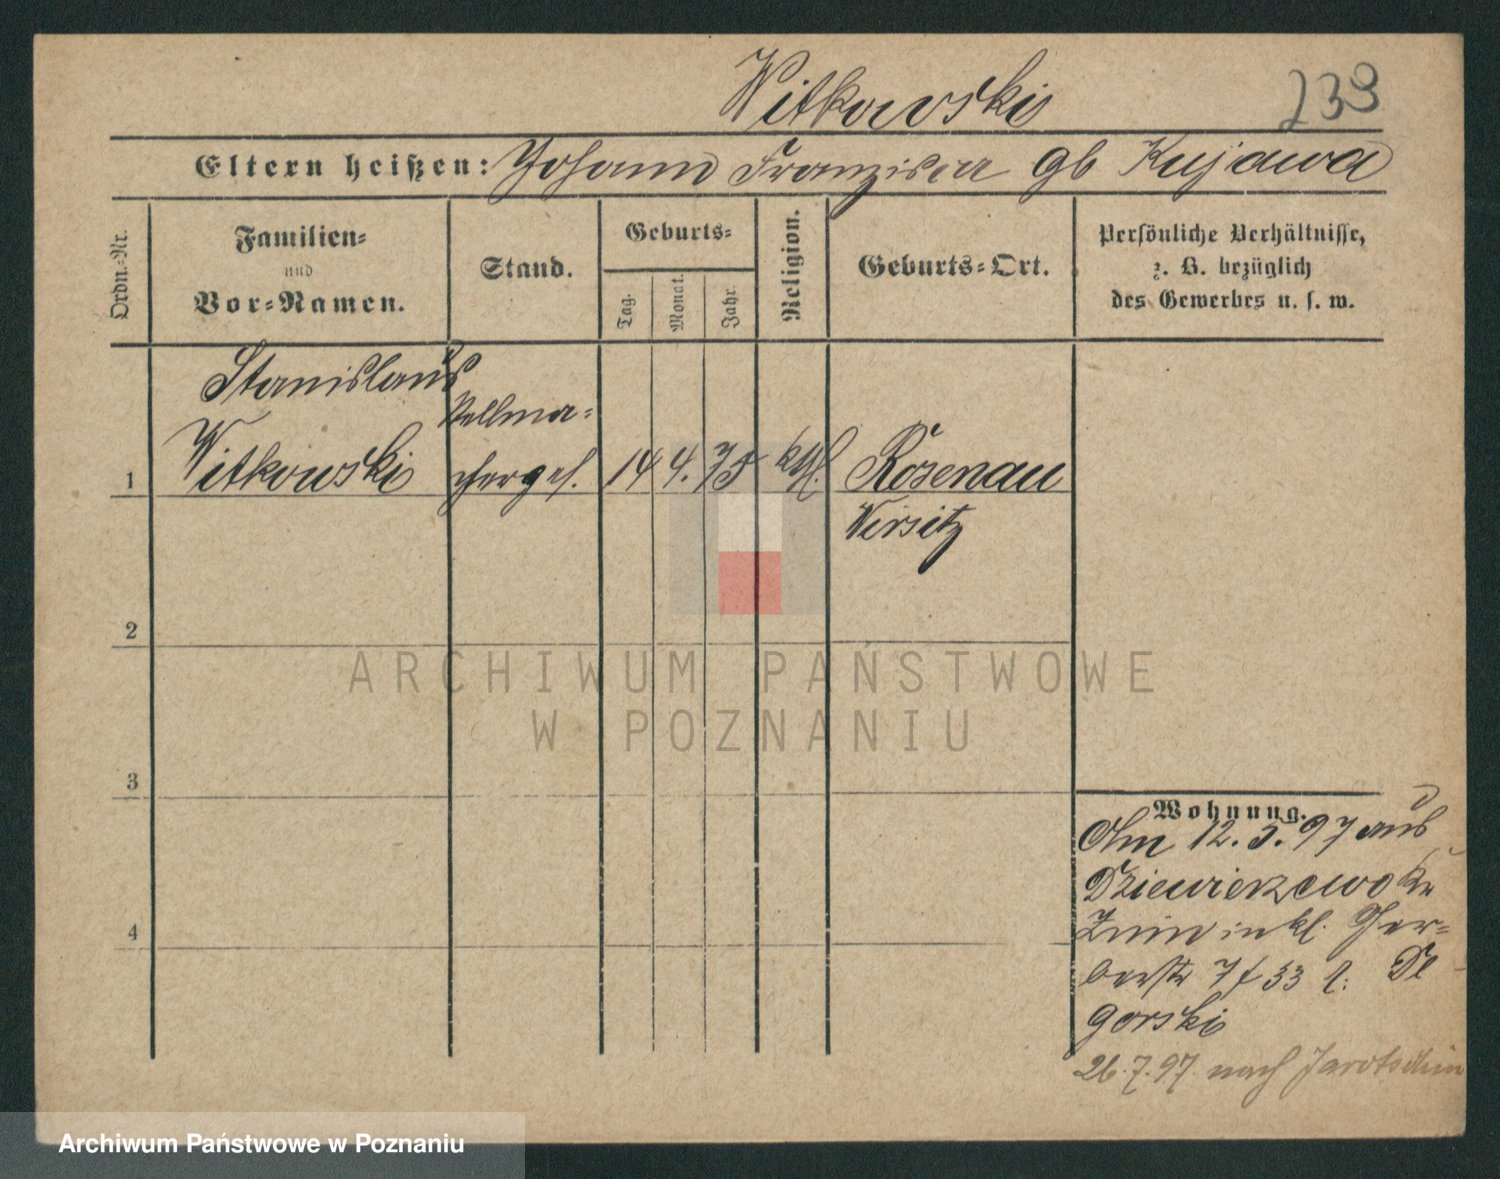 Witkowski 239
Eltern heißen: Johann Franziska gb Kujawa
Ordn.-Nr.
Familien-
und
Vor-Namen.
Stand.
Geburts-
Tag.
Monat.
Jahr.
Religion.
Geburts-Ort.
Persönliche Verhältnisse,
z. B. bezüglich
des Gewerbes u. s. w.
Stanislaus
Witkowski
Stellma-
cherges.
1
14
4.
75
kth.
Rosenau
Wirsitz
2
3
4
Wohnung.
Am 12. 5. 97 aus
Dziewierzewo Kr
Znin in kl. Ger-
berstr 7/8 33
gorski
26. 7. 97 nach Jarotschin
ARCHIWUM PAŃSTWOWE
W POZNANIU
Archiwum Państwowe w Poznaniu